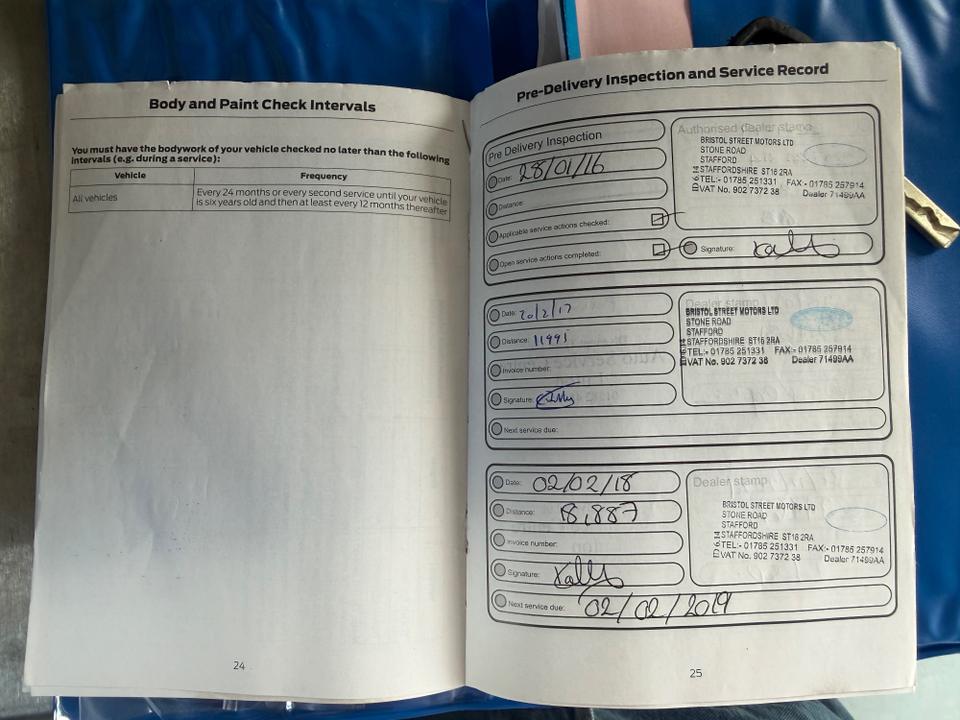 Body and Paint Check Intervals
You must have the bodywork of your vehicle checked no later than the following
intervals (e.g. during a service):
Vehicle Frequency
All vehicles Every 24 months or every second service until your vehicle
is six years old and then at least every 12 months thereafter
24
Pre-Delivery Inspection and Service Record
Pre Delivery Inspection
Date: 28/01/16
Distance:
Applicable service actions checked:
Open service actions completed:
Authorised dealer stamp
BRISTOL STREET MOTORS LTD
STONE ROAD
STAFFORD
STAFFORDSHIRE ST16 2RA
TEL:- 01785 251331 FAX:- 01785 257914
VAT No. 902 7372 38 Dealer 71499AA
Signature:
Date: 20/2/17
Distance: 11991
Invoice number:
Signature:
Next service due:
Dealer stamp
BRISTOL STREET MOTORS LTD
STONE ROAD
STAFFORD
STAFFORDSHIRE ST16 2RA
TEL:- 01785 251331 FAX:- 01785 257914
VAT No. 902 7372 38 Dealer 71499AA
Date: 02/02/18
Distance: 18,887
Invoice number:
Signature:
Next service due: 02/02/2019
Dealer stamp
BRISTOL STREET MOTORS LTD
STONE ROAD
STAFFORD
STAFFORDSHIRE ST16 2RA
TEL:- 01785 251331 FAX:- 01785 257914
VAT No. 902 7372 38 Dealer 71499AA
25